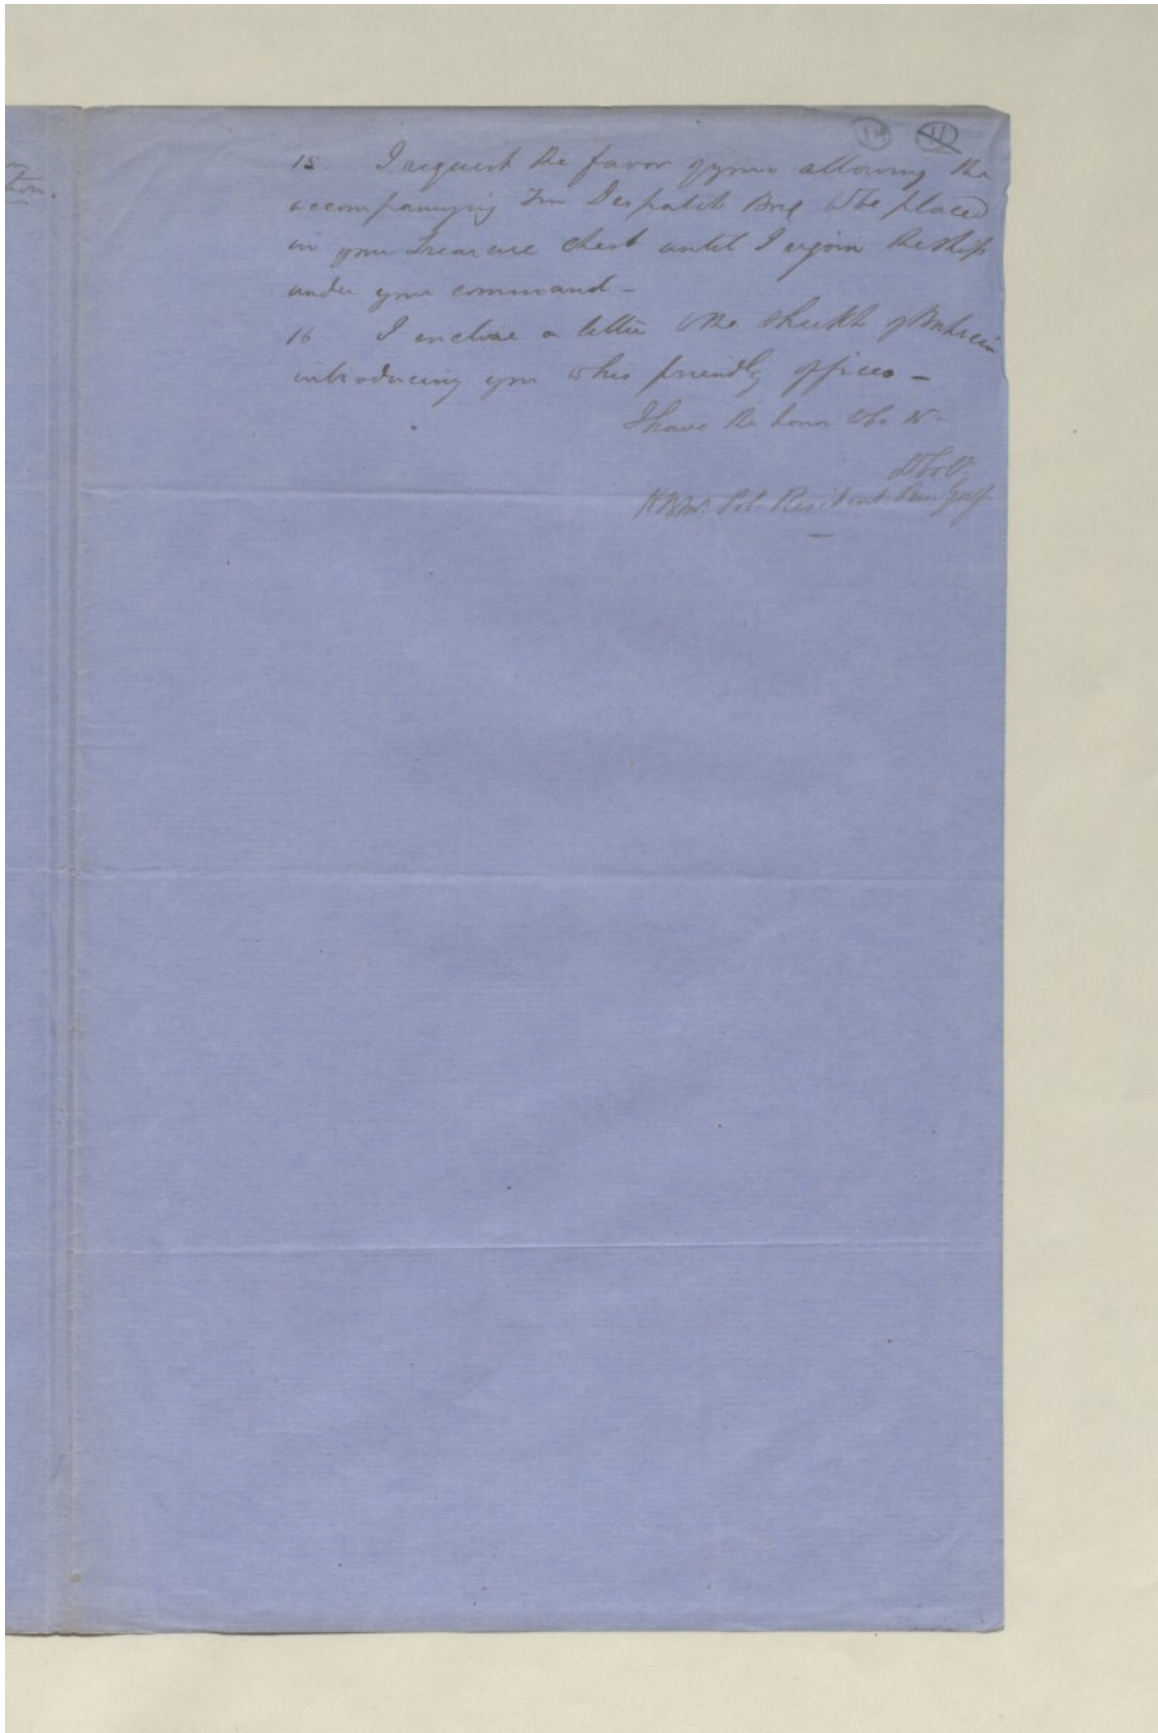 14 11
15. I request the favor of your allowing the
accompanying Tin Despatch Box to be placed
in your Treasure Chest until I rejoin the ship
under your command -
16 I enclose a letter to the Sheikh of Bahrein
introducing you to his friendly offices -
I have the honor to be &c
H.B.M's Pol. Resident Persn Gulf